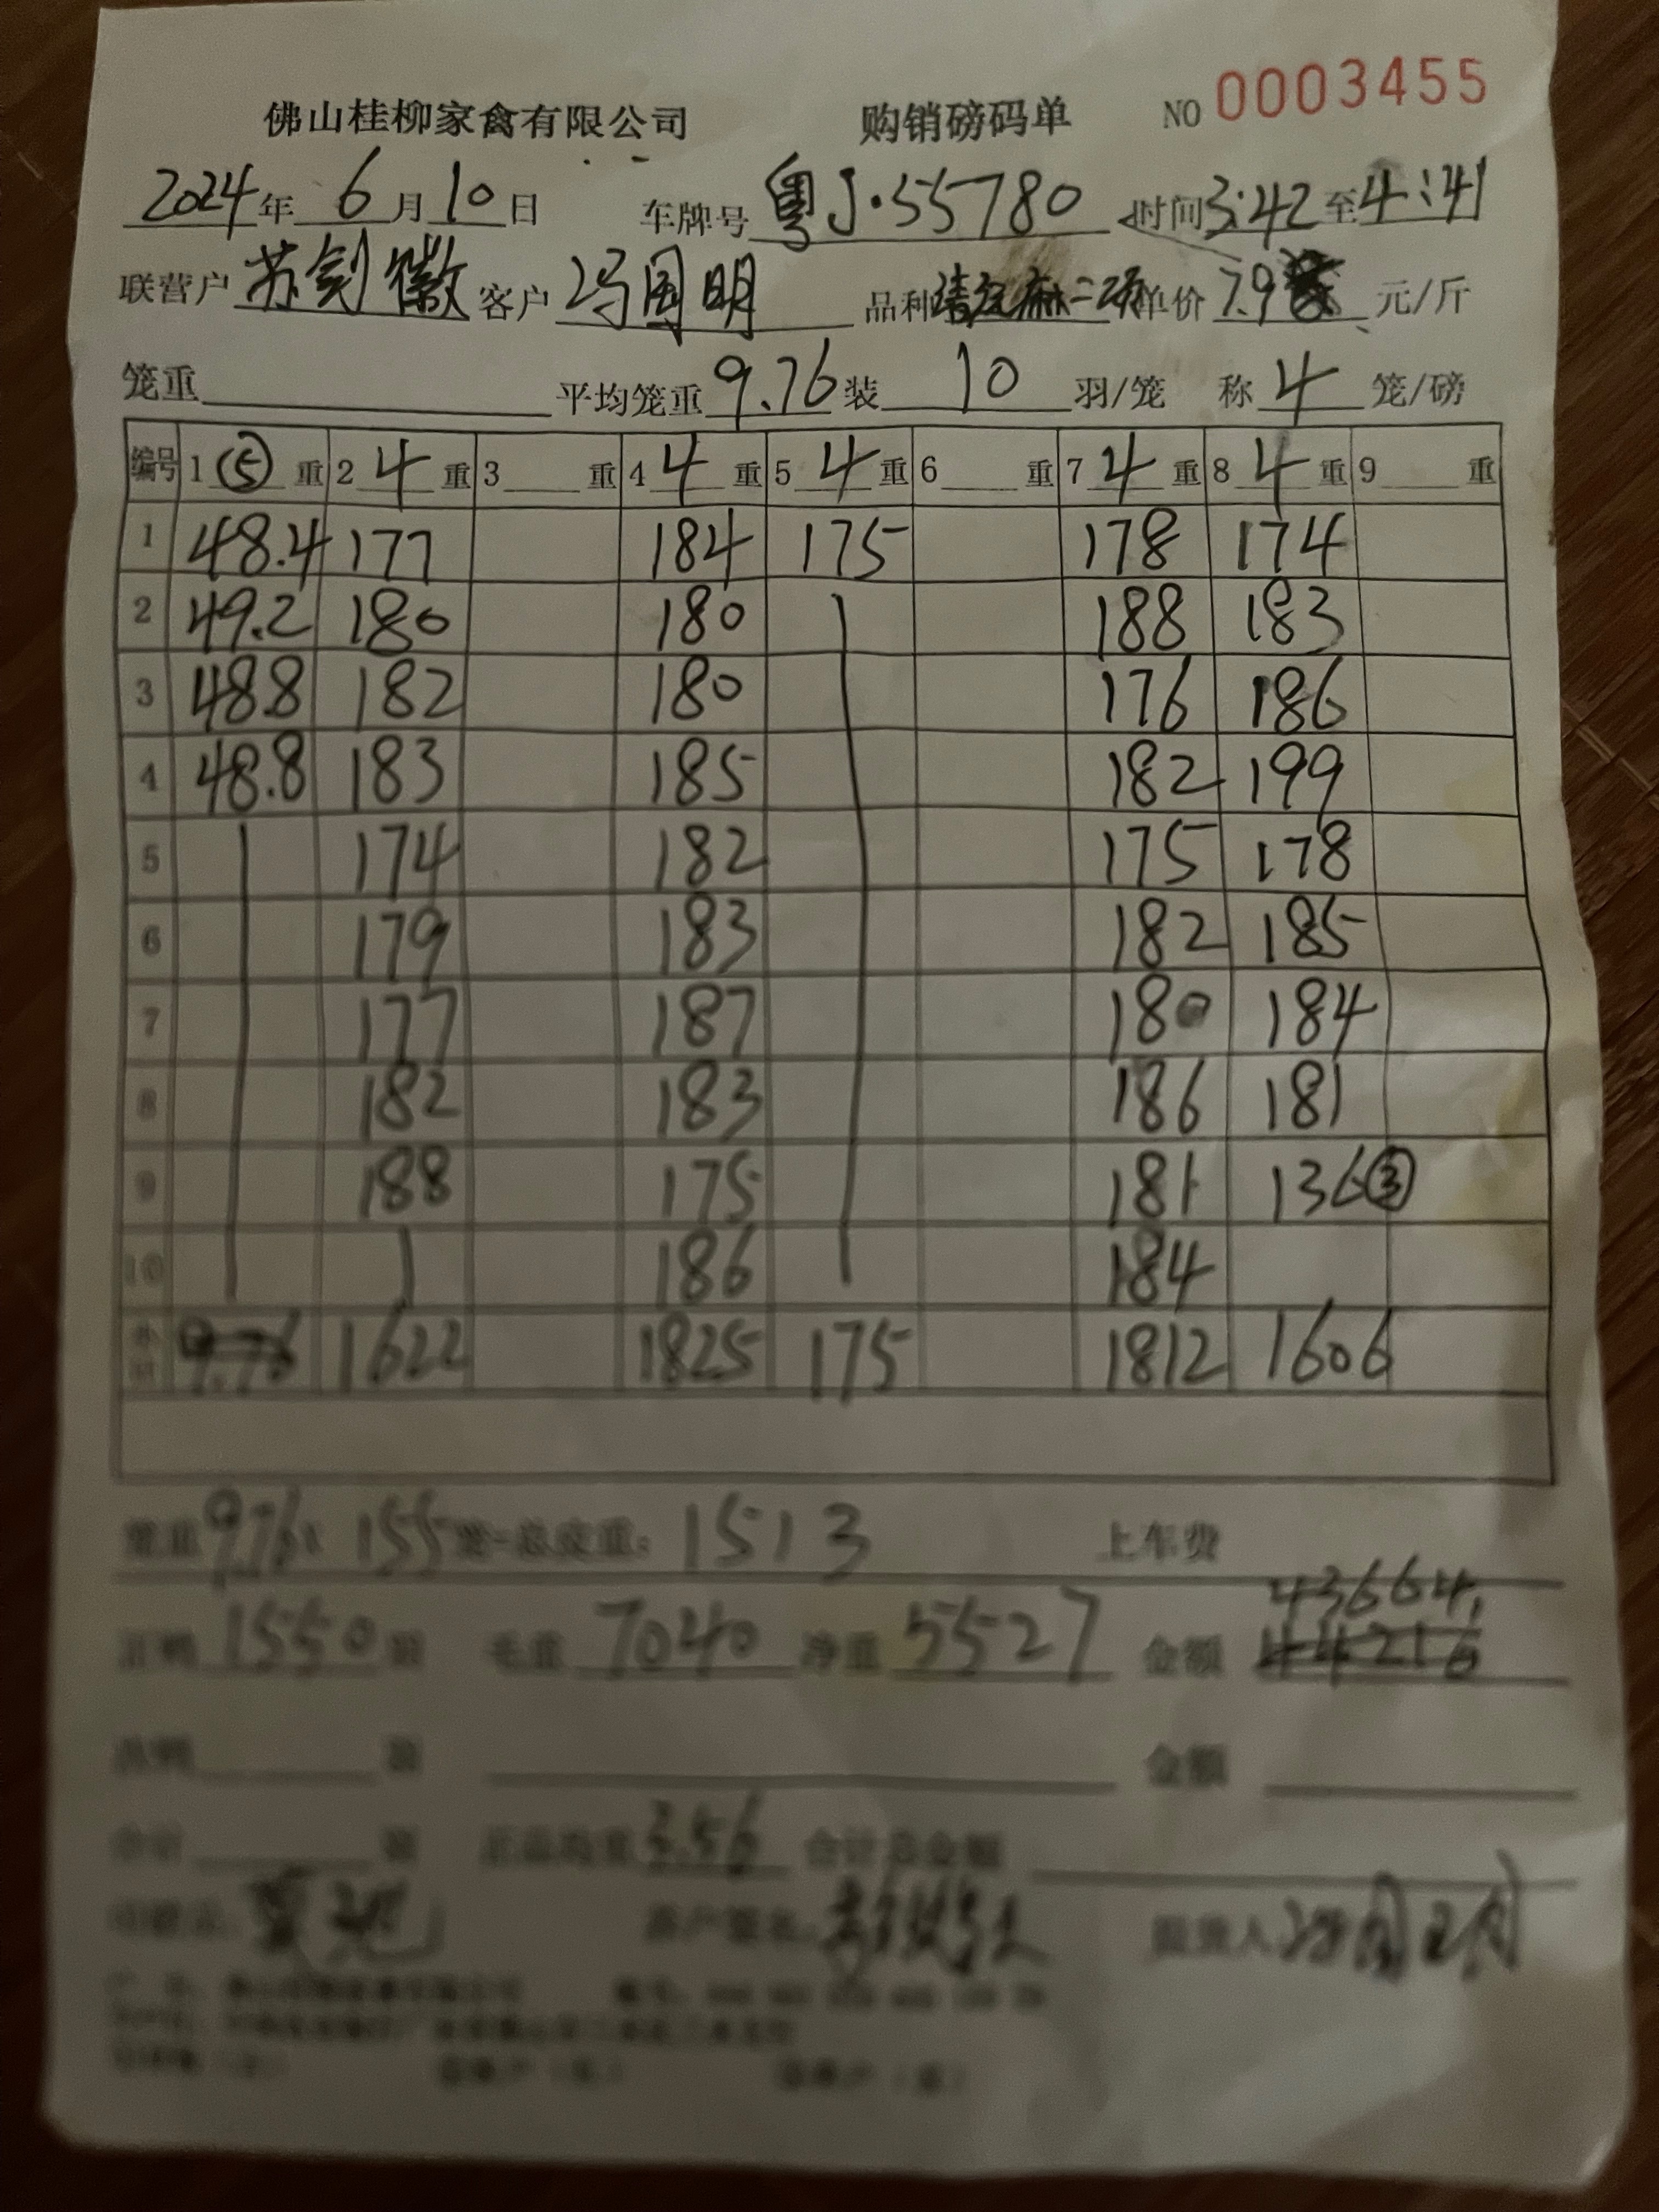 佛山桂柳家禽有限公司 购销磅码单 NO 0003455
2024年 6月10日 车牌号 粤J·55780 时间3:42至4:41
联营户 苏剑徽 客户 冯国明 品种 麻二项 单价 7.9 元/斤
笼重 平均笼重 9.76 装 10 羽/笼 称 4 笼/磅
编号 1 ⑤ 重 2 4 重 3 重 4 4 重 5 4 重 6 重 7 4 重 8 4 重 9 重
1 48.4 177 184 175 178 174
2 49.2 180 180 188 183
3 48.8 182 180 176 186
4 48.8 183 185 182 199
5 174 182 175 178
6 179 183 182 185
7 177 187 180 184
8 182 183 186 181
9 188 175 181 136③
10 186 184
9.76 1622 1825 175 1812 1606
笼重 9.76 x 155 笼=总皮重: 1513 上车费
43664.
正鸭 1550 羽 毛重 7040 净重 5527 金额 44216
金额
合计 羽 正品均重 3.56 合计总金额
客户签名: